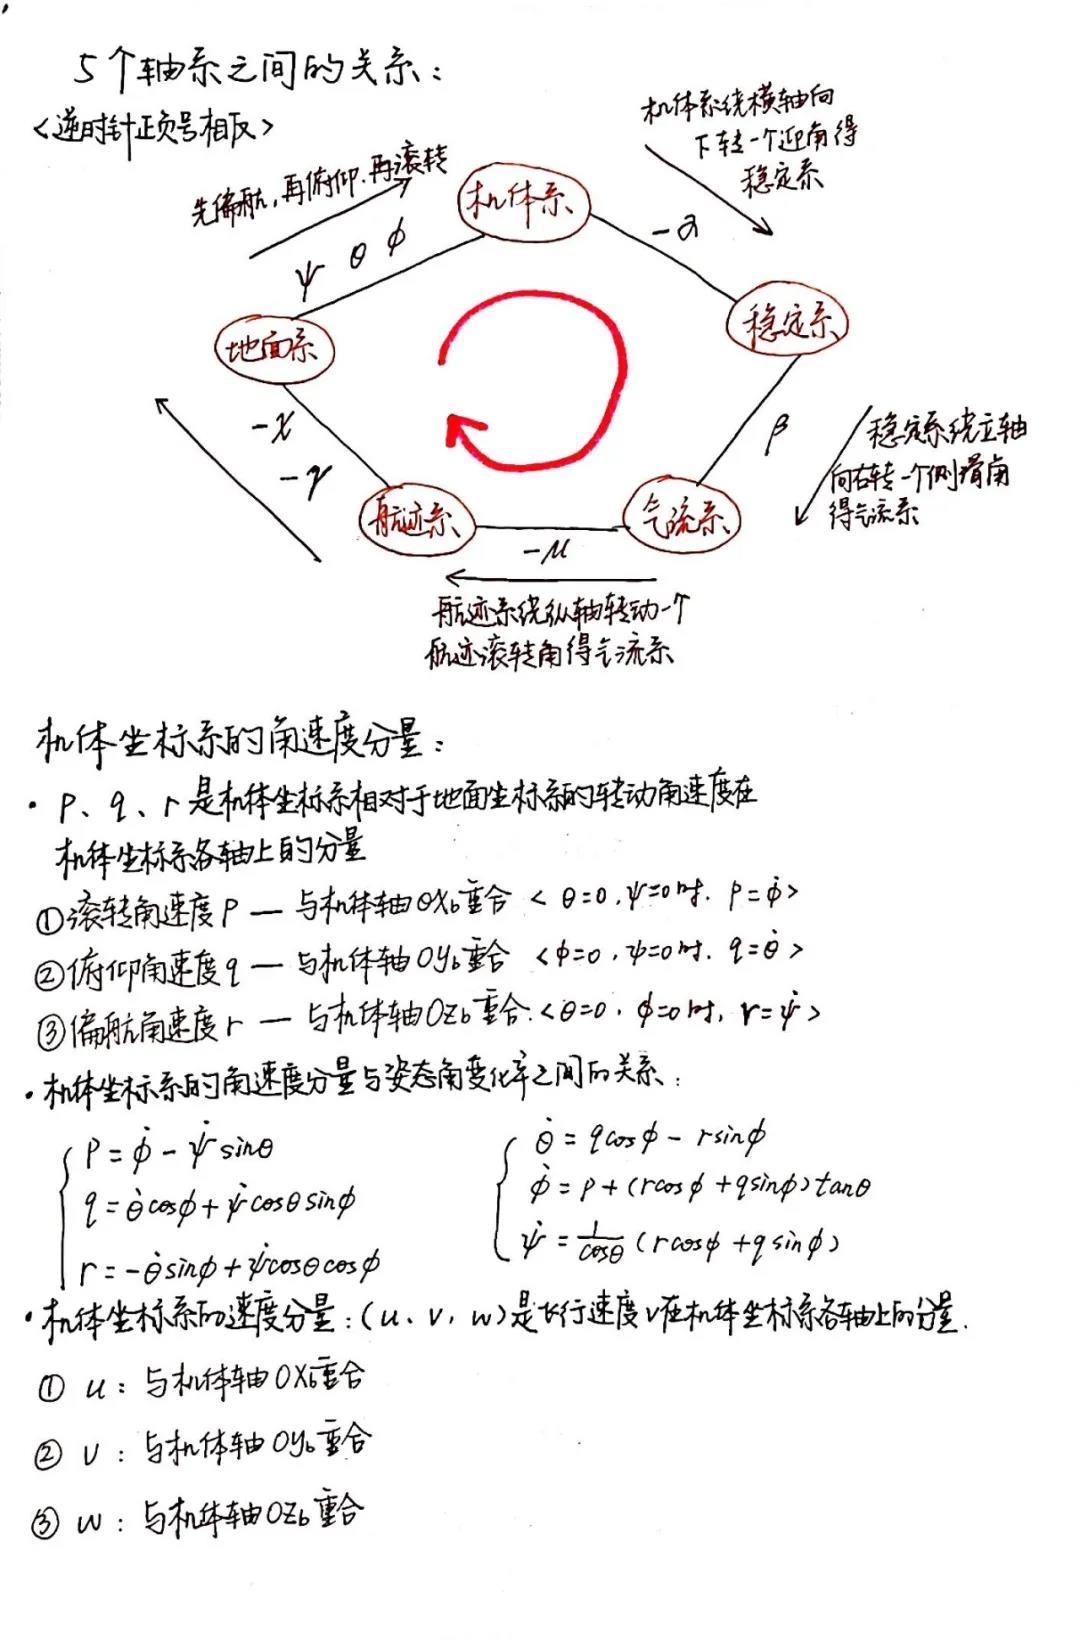 5个轴系之间的关系：
<逆时针正负号相反>
先偏航，再俯仰.再滚转
ψ θ ϕ
机体系
机体系绕横轴向
下转一个迎角得
稳定系
-α
稳定系
地面系
-χ
-γ
β
稳定系绕立轴
向右转一个侧滑角
得气流系
航迹系
气流系
-μ
航迹系绕纵轴转动一个
航迹滚转角得气流系
机体坐标系的角速度分量：
· p、q、r是机体坐标系相对于地面坐标系的转动角速度在
机体坐标系各轴上的分量
①滚转角速度p — 与机体轴OXb重合 <θ=0.ψ=0时. p=ϕ̇>
②俯仰角速度q — 与机体轴Oyb重合 <ϕ=0，ψ=0时. q=θ̇>
③偏航角速度r — 与机体轴OZb重合.<θ=0，ϕ=0时，r=ψ̇>
·机体坐标系的角速度分量与姿态角变化率之间的关系：
p=ϕ̇-ψ̇sinθ
q=θ̇cosϕ+ψ̇cosθsinϕ
r=-θ̇sinϕ+ψ̇cosθcosϕ
θ̇=qcosϕ-rsinϕ
ϕ̇=p+(rcosϕ+qsinϕ)tanθ
ψ̇=1/cosθ(rcosϕ+qsinϕ)
·机体坐标系的速度分量：(u、v，w)是飞行速度v在机体坐标系各轴上的分量.
① u：与机体轴OXb重合
② v：与机体轴Oyb重合
③ w：与机体轴OZb重合